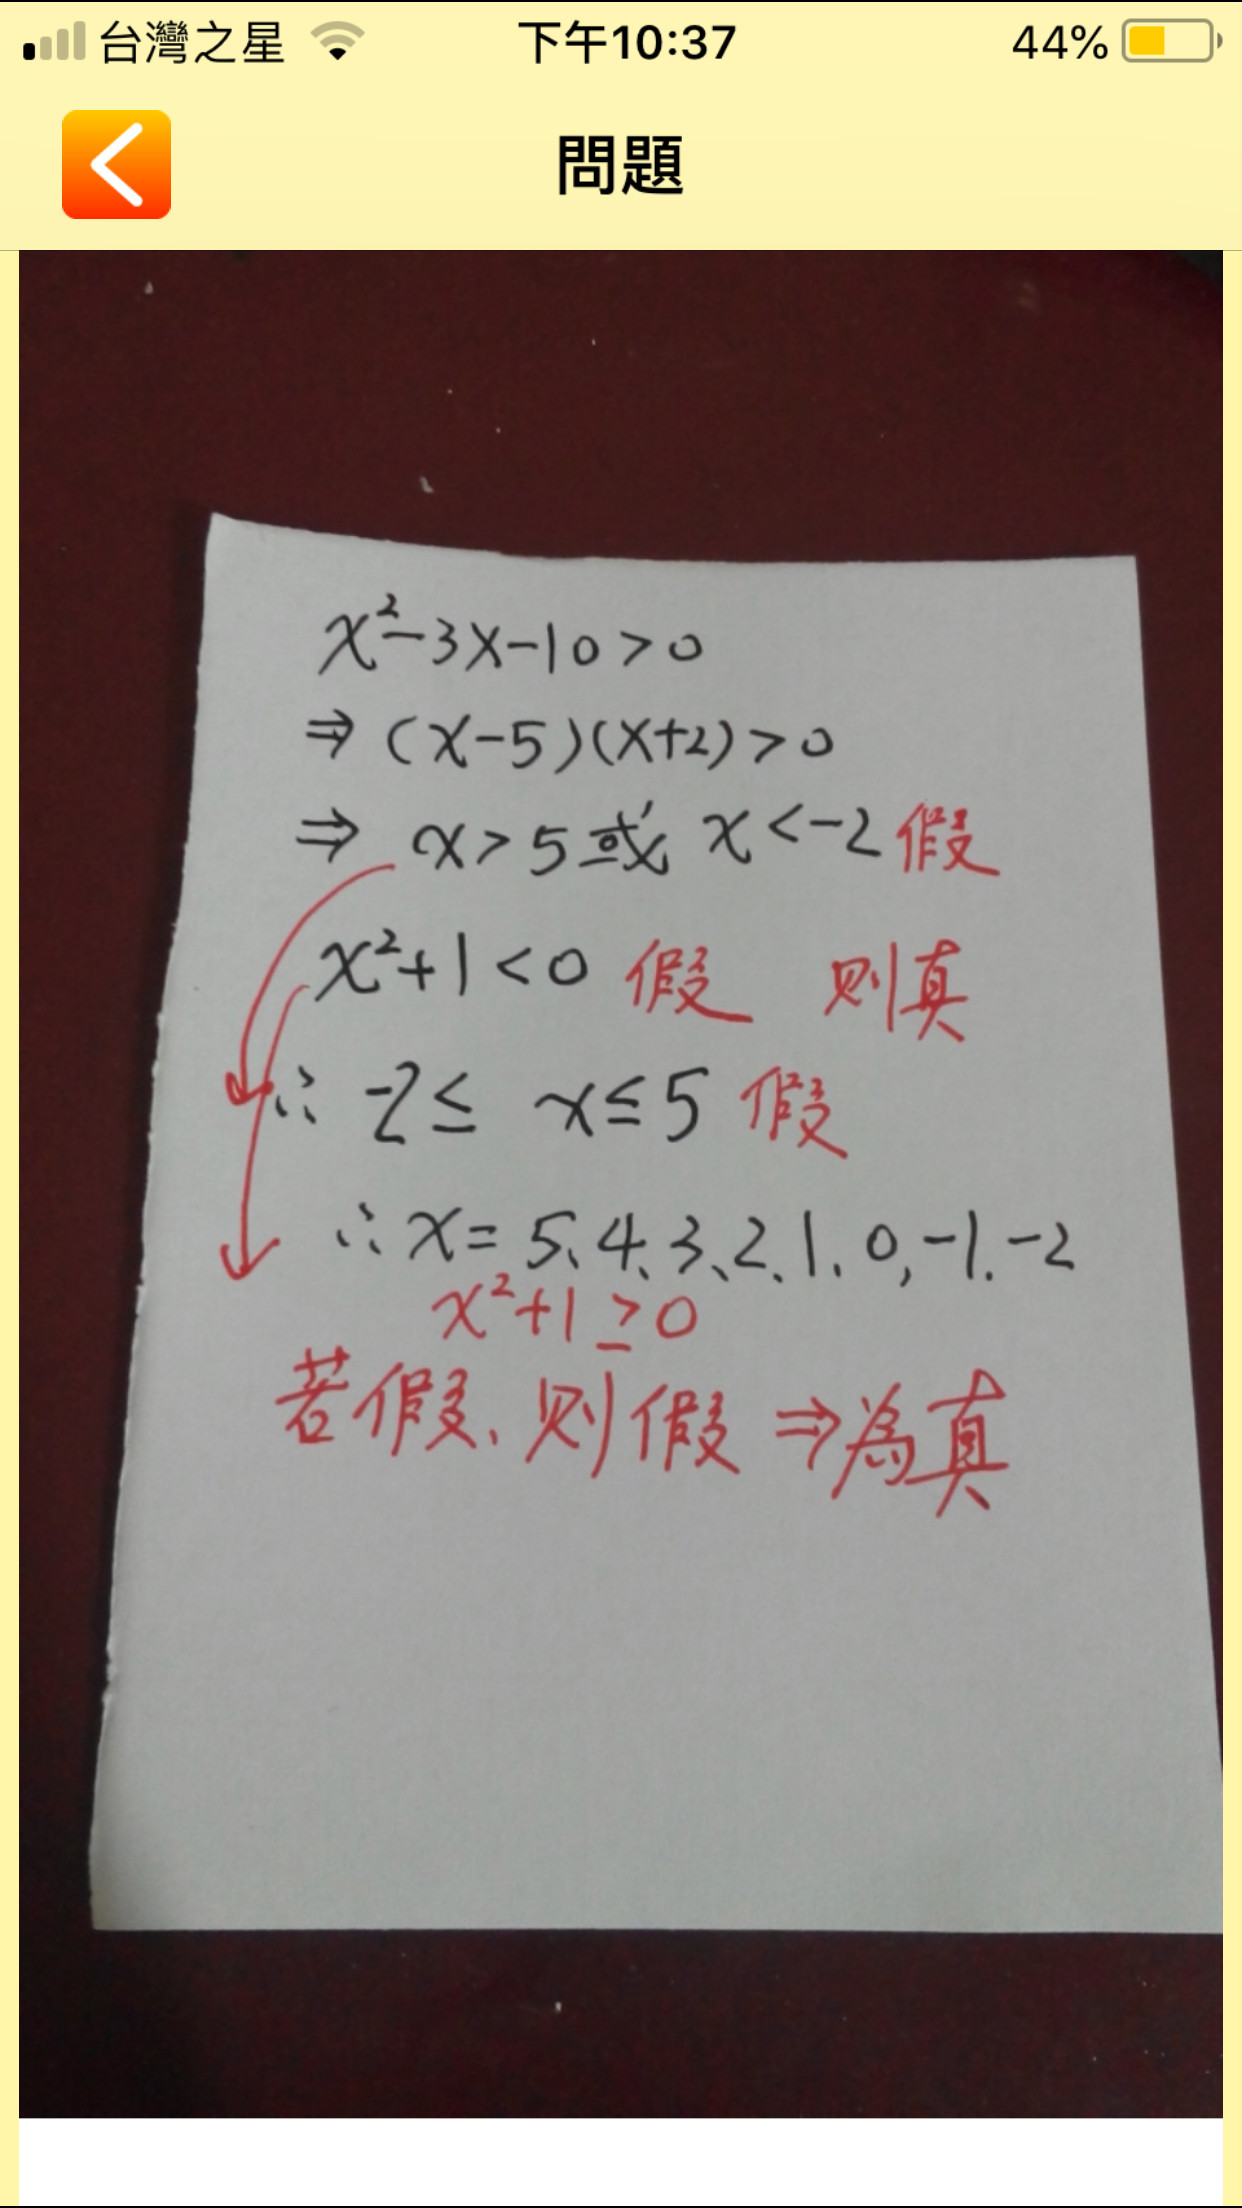 台灣之星 下午10:37 44%
問題
x²-3x-10>0
⇒(x-5)(x+2)>0
⇒ x>5或 x<-2 假
x²+1<0 假 則真
∴ -2≤ x≤5 假
∴x= 5、4、3、2、1、0,-1、-2
x²+1≥0
若假、則假⇒為真